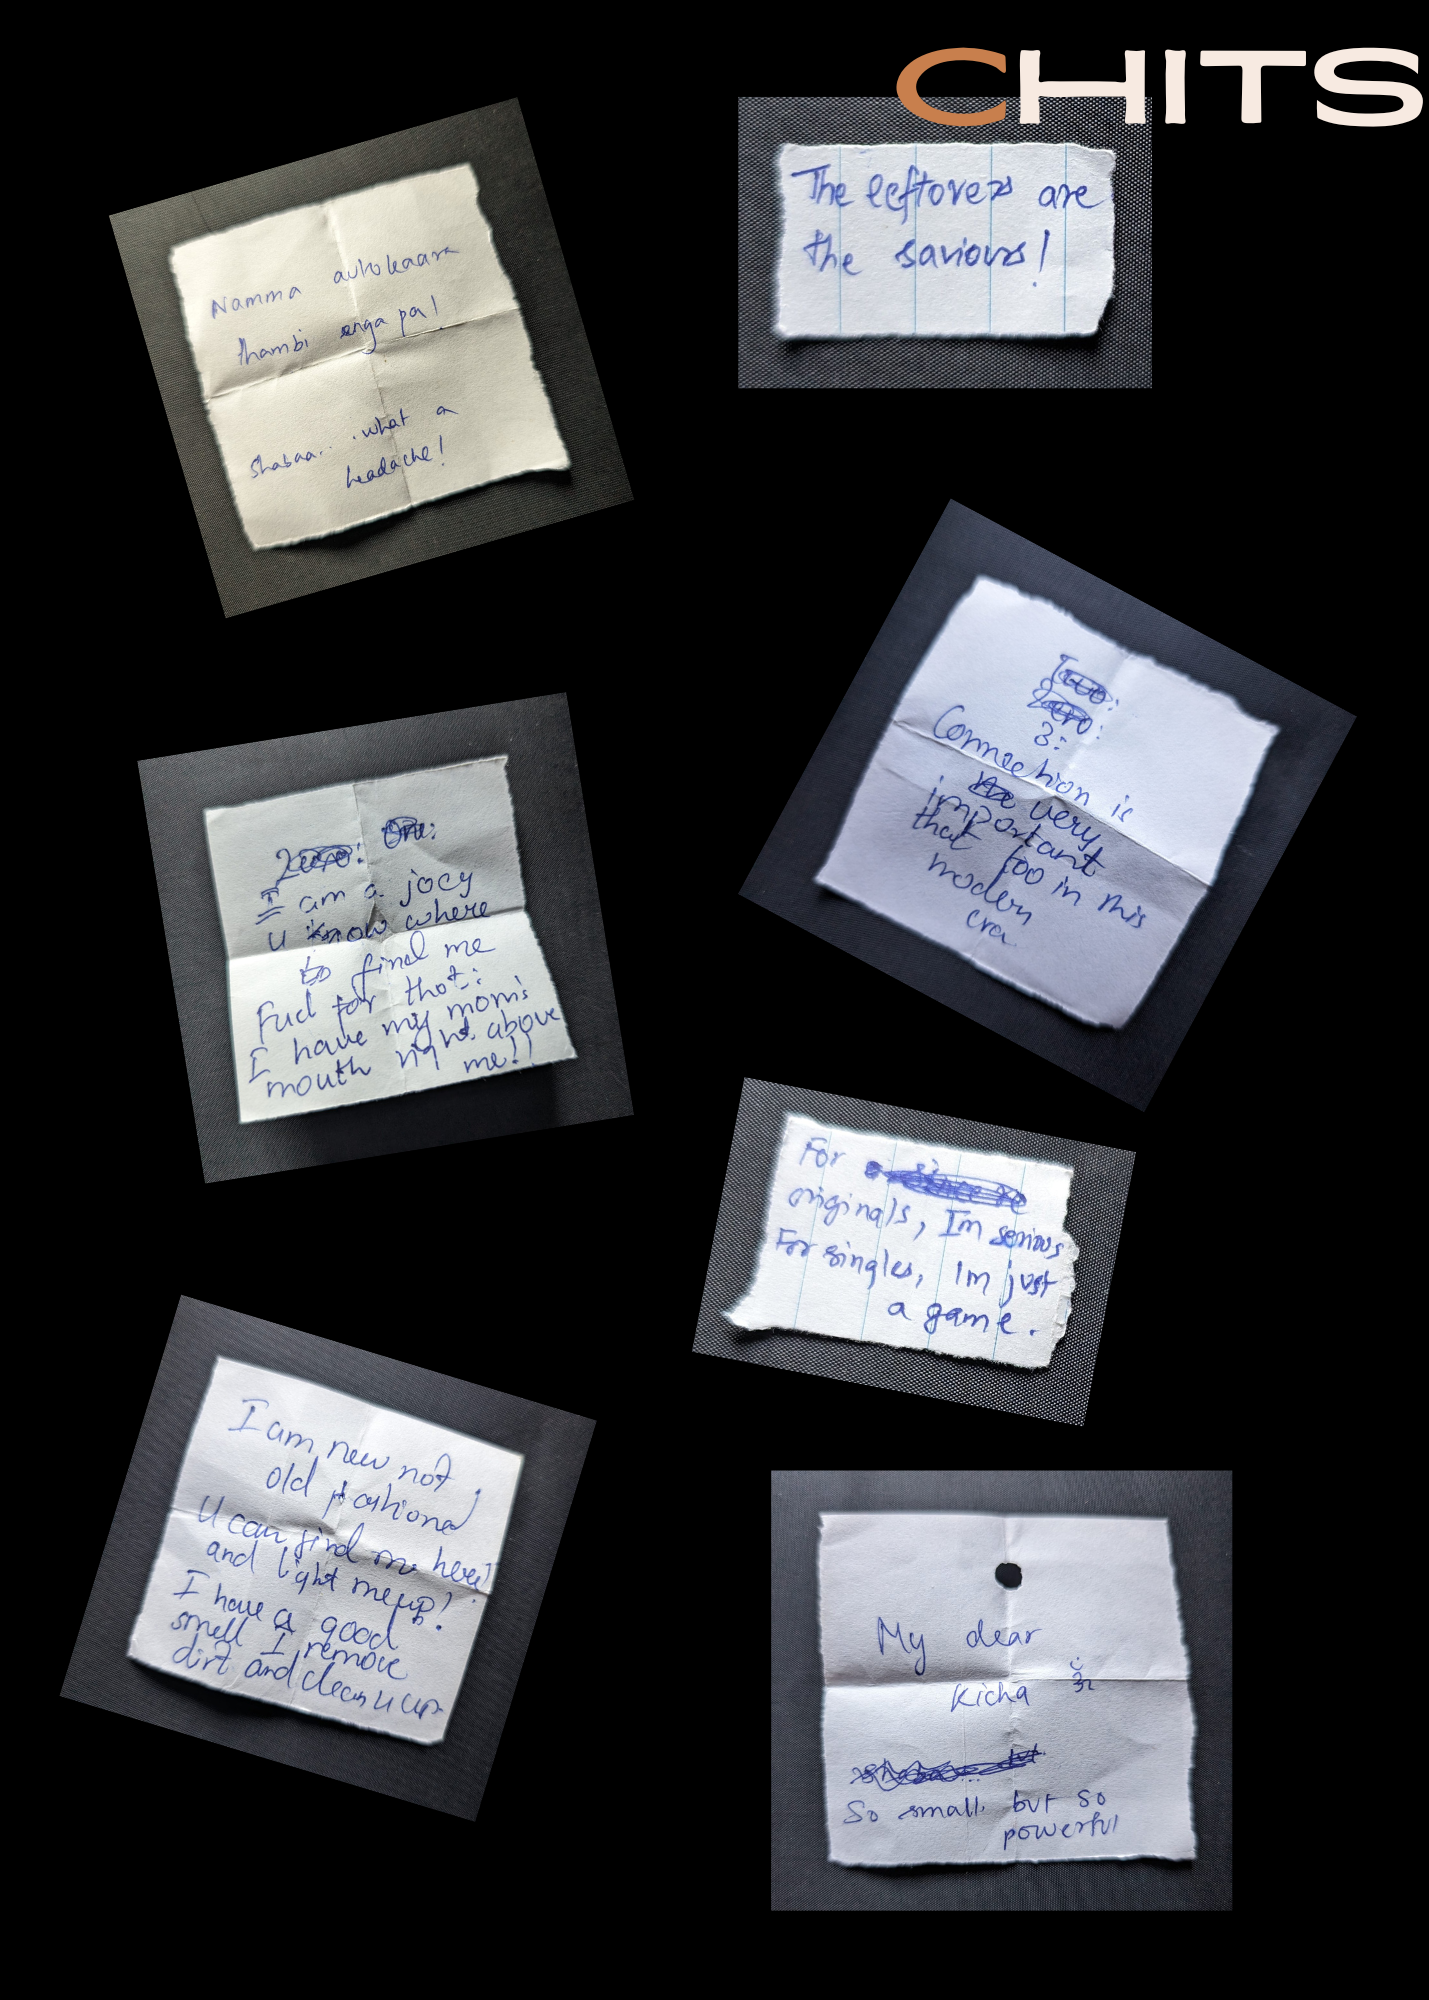 CHITS
Namma autokaara
thambi enga pa!
shabaa... what a
headache!
The leftovers are
the saviours!
3:
Connection is
very
important
that too in this
modern
era
I am a joey
u know where
to find me
Fuel for that:
I have my mom's
mouth right above
me!!
For
originals, Im serious
For singles, Im just
a game.
I am new not
old fashioned!
U can find me here!
and light me up!
I have a good
smell I remove
dirt and clean u up
My dear
Kicha
So small but so
powerful